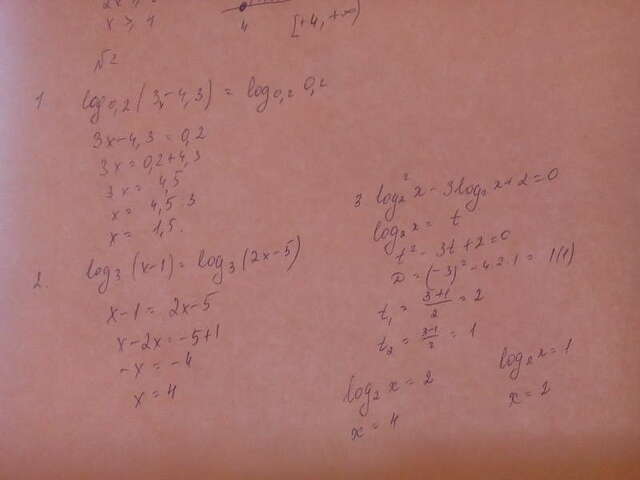 x ⩾ 4
4 [+4, +∞)
№2
1. log₀,₂ (3x-4,3) = log₀,₂ 0,2
3x-4,3 = 0,2
3x = 0,2+4,3
3x = 4,5
x = 4,5:3
x = 1,5.
2. log₃ (x-1) = log₃ (2x-5)
x-1 = 2x-5
x-2x = -5+1
-x = -4
x = 4
3 log₂² x - 3log₂ x + 2 = 0
log₂ x = t
t² - 3t + 2 = 0
D = (-3)² - 4·2·1 = 1(1)
t₁ = (3+1)/2 = 2
t₂ = (3-1)/2 = 1
log₂ x = 2 log₂ x = 1
x = 4 x = 2